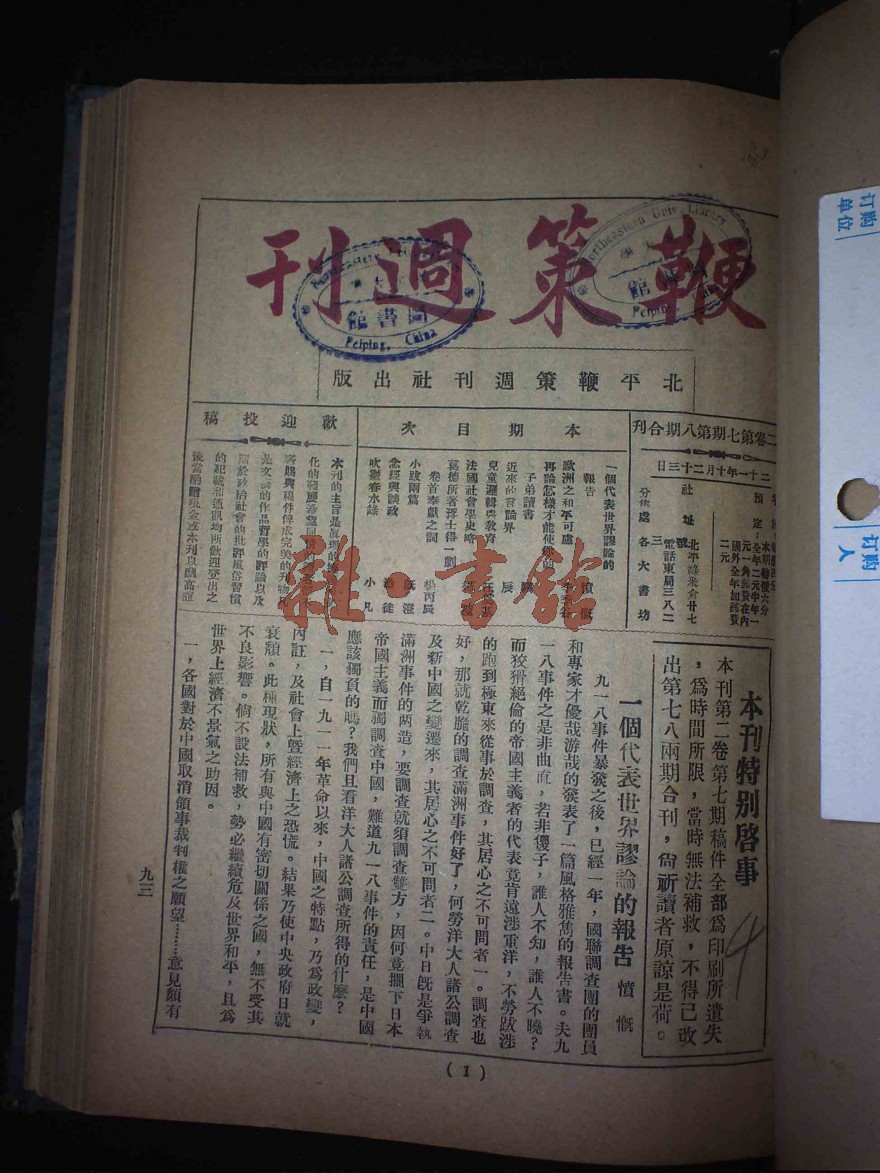 鞭策週刊
北平鞭策週刊社出版
二卷第七期第八期合刊
二十一年十月二十三日
社址
北平
號
電話東局三八二
三
分售處 各大書坊
本期目次
一個代表世界謬論的
報告
憤慨
歐洲之和平可慮
再論怎樣才能使你的
子弟讀書
近來的言論界
辰
兒童邏輯與教育
法國社會學史略
葛德所著浮士得一劇
卷首奉獻之詞
楊丙辰
小說兩篇
念經與談政
吹皺春水錄
小凡
歡迎投稿
本刊的主旨是
化的發展希望同情
客賜與稿件俾成完美的刊物凡
是文藝的作品哲學的評論以及
關於政治社會的批評風俗習慣
的記載和通訊均所歡迎登出之
後當酌贈現金或本刊以酬高誼
本刊特別啓事
本刊第二卷第七期稿件全部爲印刷所遺失
，爲時間所限，當時無法補救，不得已改
出第七八兩期合刊，尚祈讀者原諒是荷。
一個代表世界謬論的報告 憤慨
九一八事件暴發之後，已經一年，國聯調查團的團員
和專家才優哉游哉的發表了一篇風格雅雋的報告書。夫九
一八事件之是非曲直，若非傻子，誰人不知，誰人不曉？
而狡猾絕倫的帝國主義者的代表竟肯遠涉重洋，不勞跋涉
的跑到極東來從事於調查，其居心之不可問者一。調查也
好，那就乾脆的調查滿洲事件好了，何勞洋大人諸公調查
及新中國之變遷來，其居心之不可問者二。中日既是爭執
滿洲事件的两造，要調查就須調查雙方，因何竟擱下日本
帝國主義而獨調查中國，難道九一八事件的責任，是中國
應該獨負的嗎？我們且看洋大人諸公調查所得的什麽？
一，自一九一一年革命以來，中國之特點，乃爲政變，
內訌，及社會上曁經濟上之恐慌。結果乃使中央政府日就
衰頹。此種現狀，所有與中國有密切關係之國，無不受其
不良影響。倘不設法補救，勢必繼續危及世界和平，且爲
世界上經濟不景氣之助因。
一，各國對於中國取消領事裁判權之願望………意見頗有
九三
(1)
Northeastern Univ. Library
圖書館
Peiping, China
雜·書館
订购单位
订购人